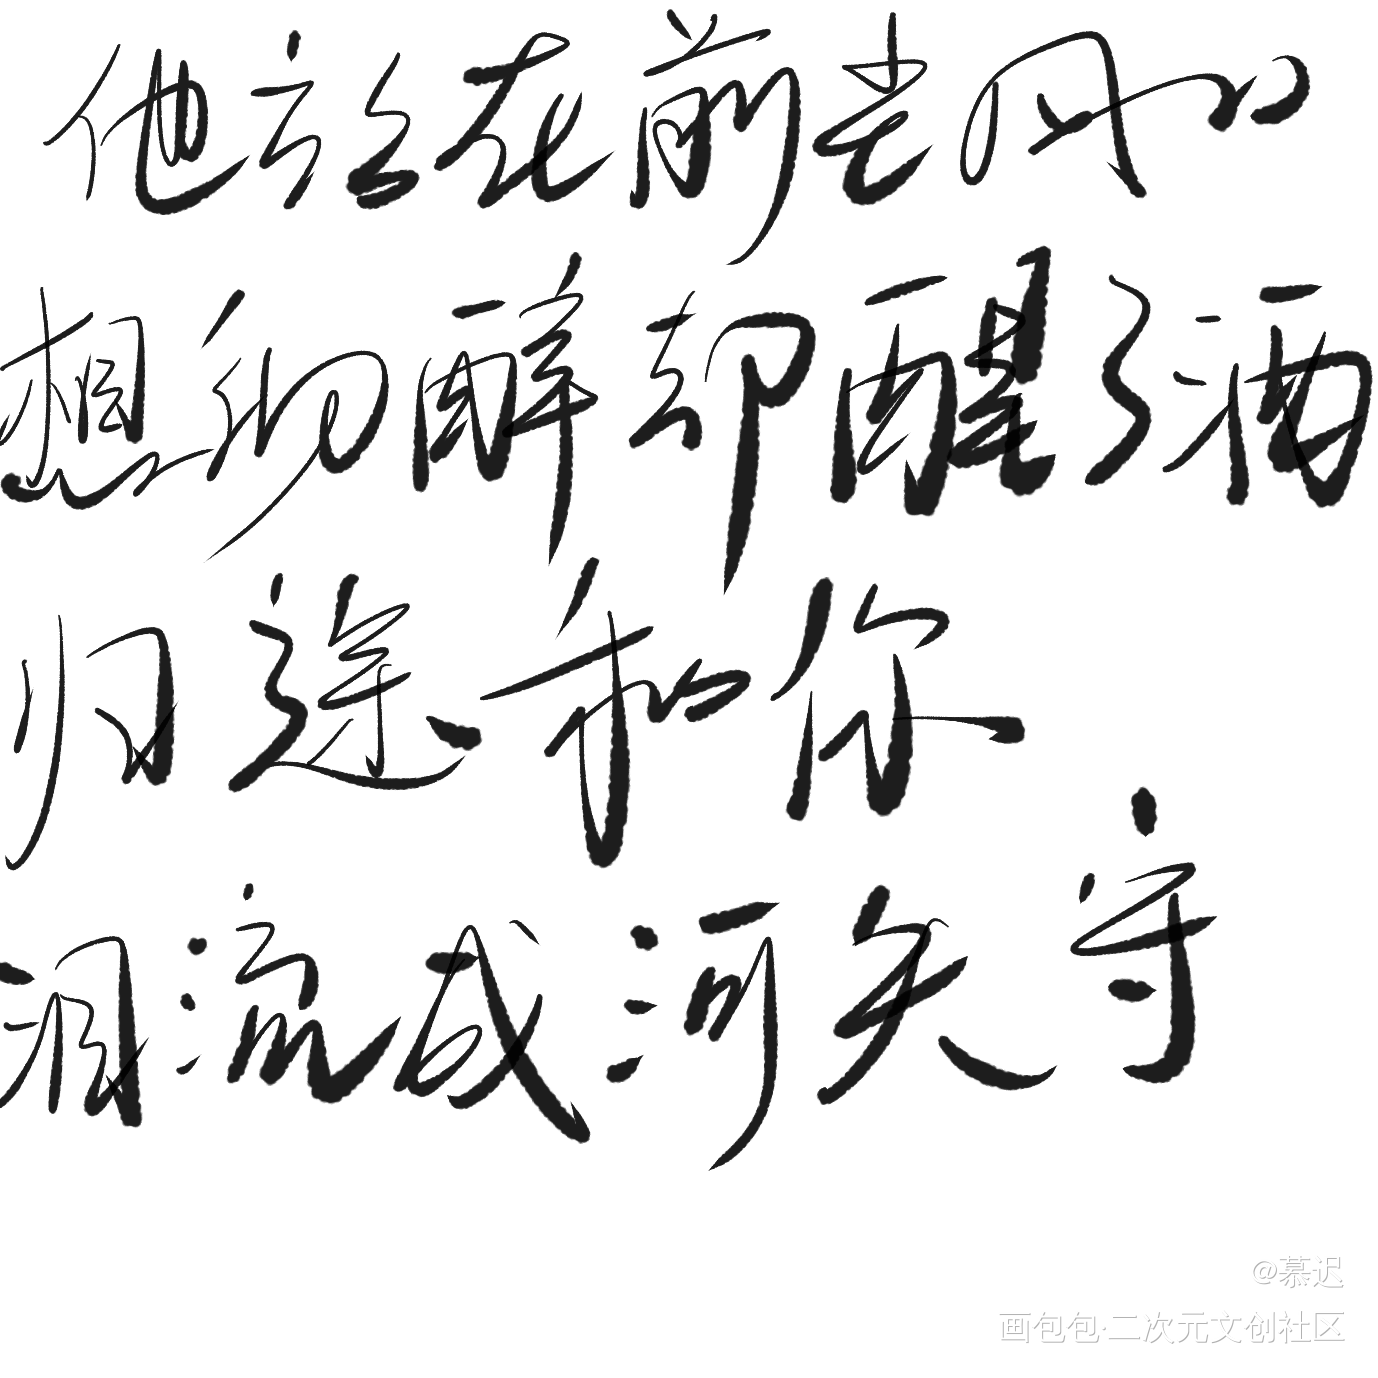 他站在前尘风口
想彻醉却醒了酒
归途和你
泪流成河失守
@慕迟
画包包·二次元文创社区